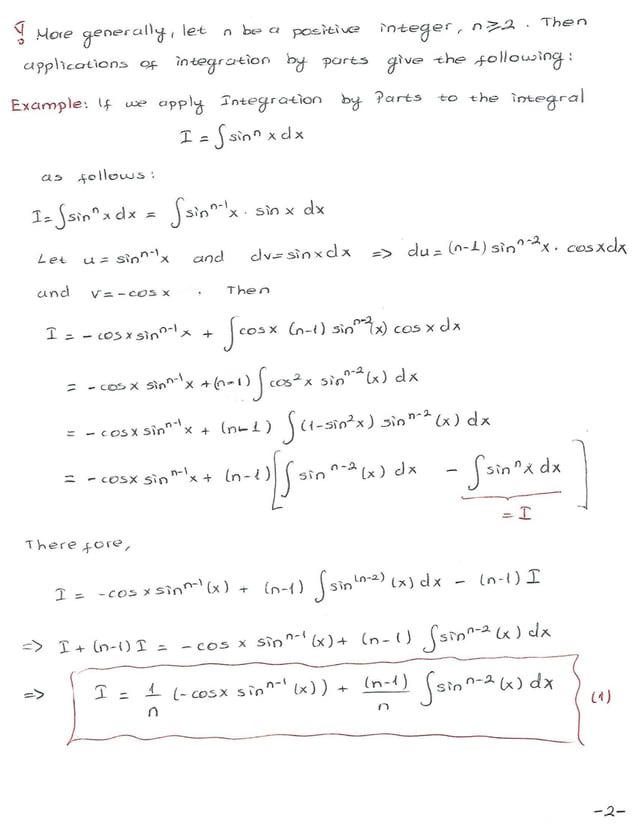 ! More generally, let n be a positive integer, n≥2. Then
applications of integration by parts give the following:
Example: If we apply Integration by Parts to the integral
I = ∫sinⁿ x dx
as follows:
I = ∫sinⁿ x dx = ∫sinⁿ⁻¹x . sin x dx
Let u = sinⁿ⁻¹x and dv = sinxdx => du = (n-1) sinⁿ⁻²x . cosxdx
and v = -cosx . Then
I = -cosx sinⁿ⁻¹x + ∫cosx (n-1) sinⁿ⁻²(x) cosxdx
= -cosx sinⁿ⁻¹x + (n-1) ∫cos²x sinⁿ⁻²(x) dx
= -cosx sinⁿ⁻¹x + (n-1) ∫(1-sin²x) sinⁿ⁻²(x) dx
= -cosx sinⁿ⁻¹x + (n-1) [∫sinⁿ⁻²(x) dx - ∫sinⁿx dx]
= I
Therefore,
I = -cosx sinⁿ⁻¹(x) + (n-1) ∫sin⁽ⁿ⁻²⁾(x) dx - (n-1) I
=> I + (n-1) I = -cosx sinⁿ⁻¹(x) + (n-1) ∫sinⁿ⁻²(x) dx
=> I = 1/n (-cosx sinⁿ⁻¹(x)) + (n-1)/n ∫sinⁿ⁻²(x) dx (1)
-2-